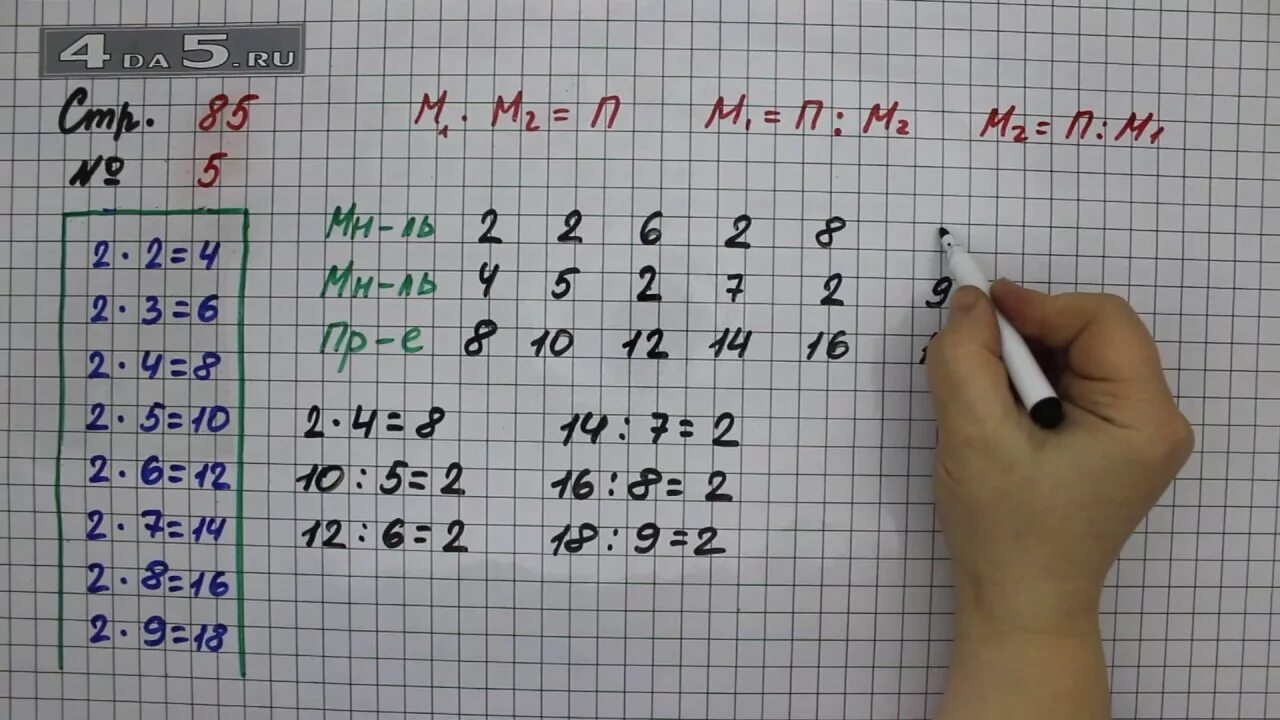 4DA5.RU
Стр. 85
М₁ · М₂ = П М₁ = П : М₂ М₂ = П : М₁
№ 5
2 · 2 = 4
2 · 3 = 6
2 · 4 = 8
2 · 5 = 10
2 · 6 = 12
2 · 7 = 14
2 · 8 = 16
2 · 9 = 18
Мн-ль 2 2 6 2 8
Мн-ль 4 5 2 7 2 9
Пр-е 8 10 12 14 16
2 · 4 = 8 14 : 7 = 2
10 : 5 = 2 16 : 8 = 2
12 : 6 = 2 18 : 9 = 2